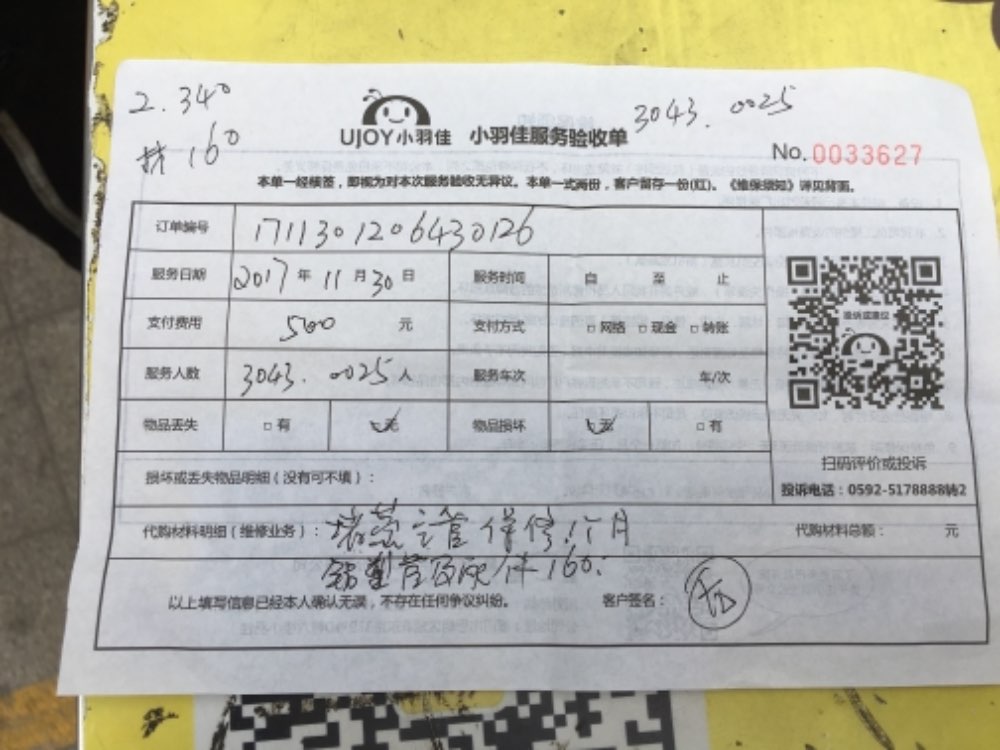 2. 340
160
3043. 0025
UJOY小羽佳 小羽佳服务验收单
No. 0033627
本单一经核签，即视为对本次服务验收无异议。本单一式两份，客户留存一份(红)。《维保须知》详见背面。
订单编号 1711301206430126
服务日期 2017 年 11 月 30 日 服务时间 自 至 止
支付费用 500 元 支付方式 □网络 □现金 □转账
服务人数 3043. 0025 人 服务车次 车/次
物品丢失 □有 无 物品损坏 无 □有
扫码评价或投诉
投诉电话：0592-5178888转2
损坏或丢失物品明细（没有可不填）：
代购材料明细（维修业务）： 管 保修1个月 代购材料总额： 元
铝塑管及配件160.
以上填写信息已经本人确认无误，不存在任何争议纠纷。 客户签名：